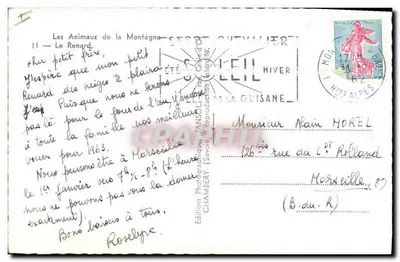 Les Animaux de la Montagne
11 - Le Renard
Cher petit frère,
J'espère que mon petit
Renard des neiges te plaira
Puisque nous ne serons
pas là pour le jour de l'an, j'envoie
à toute la famille nos meilleurs
voeux pour 1963.
Nous pensons être à Marseille
le 1er janvier vers 7h½ - 8h (l'heure
nous ne pouvons pas vous la donner
exactement).
Bons baisers à tous.
Roselyne
CHEVALIER
ÉTÉ SOLEIL HIVER
DE LA GUISANE
HTES ALPES
CHAMBÉRY
Monsieur Alain MOREL
126 bis rue du Ct Rolland
Marseille 8)
(B.-du-R)